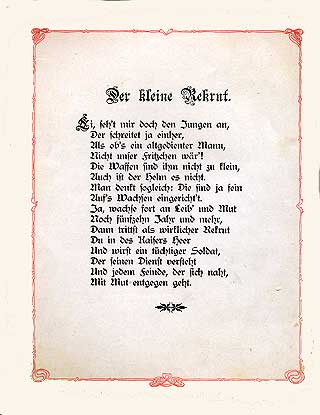 Der kleine Rekrut.
Ei, seh't mir doch den Jungen an,
Der schreitet ja einher,
Als ob's ein altgedienter Mann,
Nicht unser Fritzchen wär'!
Die Waffen sind ihm nicht zu klein,
Auch ist der Helm es nicht.
Man denkt sogleich: Die sind ja fein
Auf's Wachsen eingericht't.
Ja, wachse fort an Leib' und Mut
Noch fünfzehn Jahr und mehr,
Dann trittst als wirklicher Rekrut
Du in des Kaisers Heer
Und wirst ein tüchtiger Soldat,
Der seinen Dienst versteht
Und jedem Feinde, der sich naht,
Mit Mut entgegen geht.